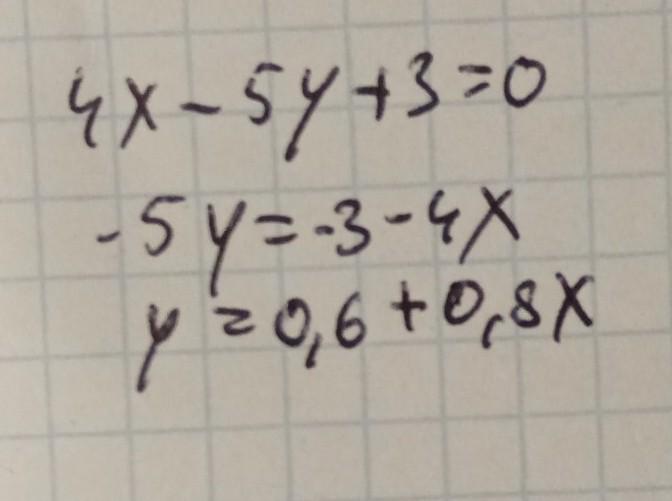 4x - 5y + 3 = 0
-5y = -3 - 4x
y = 0,6 + 0,8x